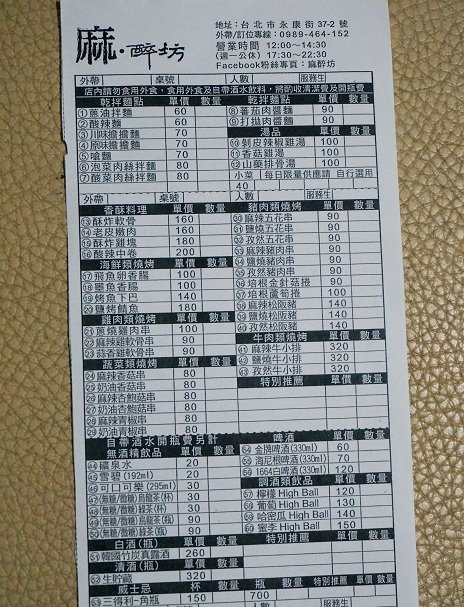 麻·醉坊
地址：台北市永康街37-2號
外帶/訂位專線：0989-464-152
營業時間 12:00~14:30
(週一公休) 17:30~22:30
Facebook粉絲專頁：麻醉坊
店內請勿食用外食，食用外食及自帶酒水飲料，將酌收清潔費及開瓶費
外帶 桌號 人數 服務生
乾拌麵點 單價 數量
①蔥油拌麵 60
②酸辣麵 60
③川味擔擔麵 70
④原味擔擔麵 70
⑤嗆麵 70
⑥泡菜肉絲拌麵 80
⑦酸菜肉絲拌麵 80
乾拌麵點 單價 數量
⑧蕃茄肉醬麵 90
⑨打拋肉醬麵 90
湯品
⑩剝皮辣椒雞湯 100
⑪香菇雞湯 100
⑫山藥排骨湯 100
小菜 每日限量供應請 自行選用
40
外帶 桌號 人數 服務生
香酥料理 單價 數量
⑬酥炸軟骨 160
⑭老皮嫩肉 160
⑮酥炸雞塊 180
⑯酸辣中卷 200
海鮮類燒烤 單價 數量
⑰飛魚卵香腸 100
⑱墨魚香腸 100
⑲烤魚下巴 140
⑳鹽烤鯖魚 180
雞肉類燒烤 單價 數量
㉑蔥燒雞肉串 100
㉒麻辣雞軟骨串 90
㉓蒜香雞軟骨串 90
蔬菜類燒烤 單價 數量
㉔麻辣香菇串 80
㉕奶油香菇串 80
㉖麻辣杏鮑菇串 80
㉗奶油杏鮑菇串 80
㉘麻辣青椒串 80
㉙奶油青椒串 80
豬肉類燒烤 單價 數量
㉚麻辣五花串 90
㉛鹽燒五花串 90
㉜孜然五花串 90
㉝麻辣豬肉串 90
㉞鹽燒豬肉串 90
㉟孜然豬肉串 90
㊱培根金針菇捲 90
㊲培根蘆筍捲 100
㊳麻辣松阪豬 140
㊴鹽燒松阪豬 140
㊵孜然松阪豬 140
牛肉類燒烤 單價 數量
㊶麻辣牛小排 320
㊷鹽燒牛小排 320
㊸孜然牛小排 320
特別推薦 單價 數量
自帶酒水開瓶費另計
無酒精飲品 單價 數量
㊹礦泉水 20
㊺雪碧(192ml) 20
㊻可口可樂(295ml) 30
㊼(無糖/微糖)烏龍茶(杯) 30
㊽(無糖/微糖)綠茶(杯) 30
㊾(無糖/微糖)烏龍茶(瓶) 90
㊿(無糖/微糖)綠茶(瓶) 90
白酒(瓶) 單價 數量
51韓國竹炭真露酒 260
清酒(瓶) 單價 數量
52生貯藏 320
威士忌 杯 數量 瓶 數量
53三得利-角瓶 150 700
啤酒 單價 數量
54金牌啤酒(330ml) 60
55海尼根啤酒(330ml) 70
56 1664白啤酒(330ml) 120
調酒類飲品 單價 數量
57檸檬High Ball 120
58葡萄High Ball 130
59哈密瓜High Ball 140
60蜜李High Ball 150
特別推薦 單價 數量
特別推薦 單價 數量